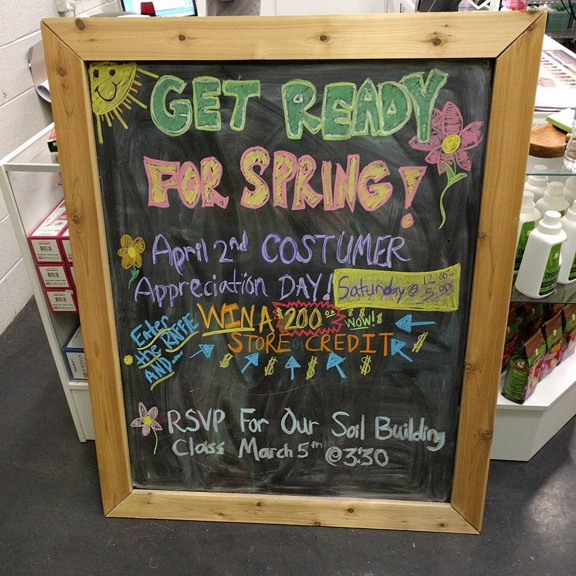 GET READY
FOR SPRING!
April 2nd COSTUMER
Appreciation DAY! Saturday @ 12:00-5:00
Enter the RAFFLE AND~
WIN A $200.00 WOW!
STORE CREDIT
RSVP For Our Soil Building
Class March 5th @3:30